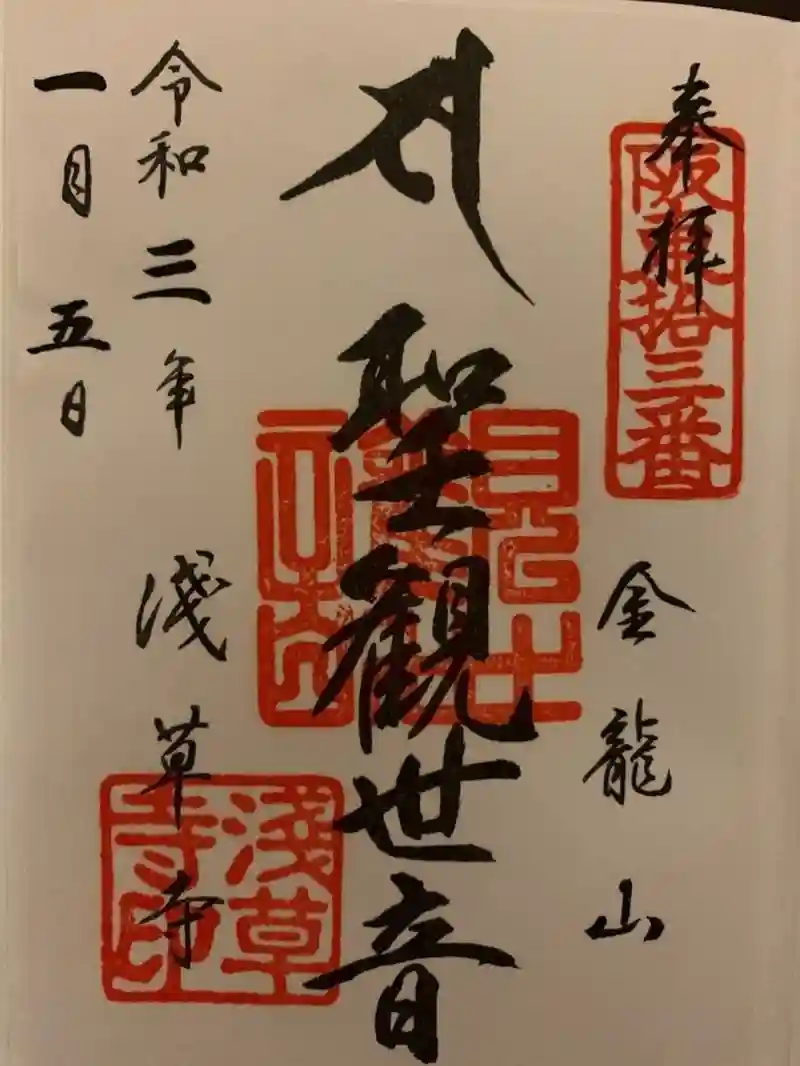 奉拝
阪東拾三番
金龍山
聖観世音
令和三年
淺草寺
一月五日
淺草寺印